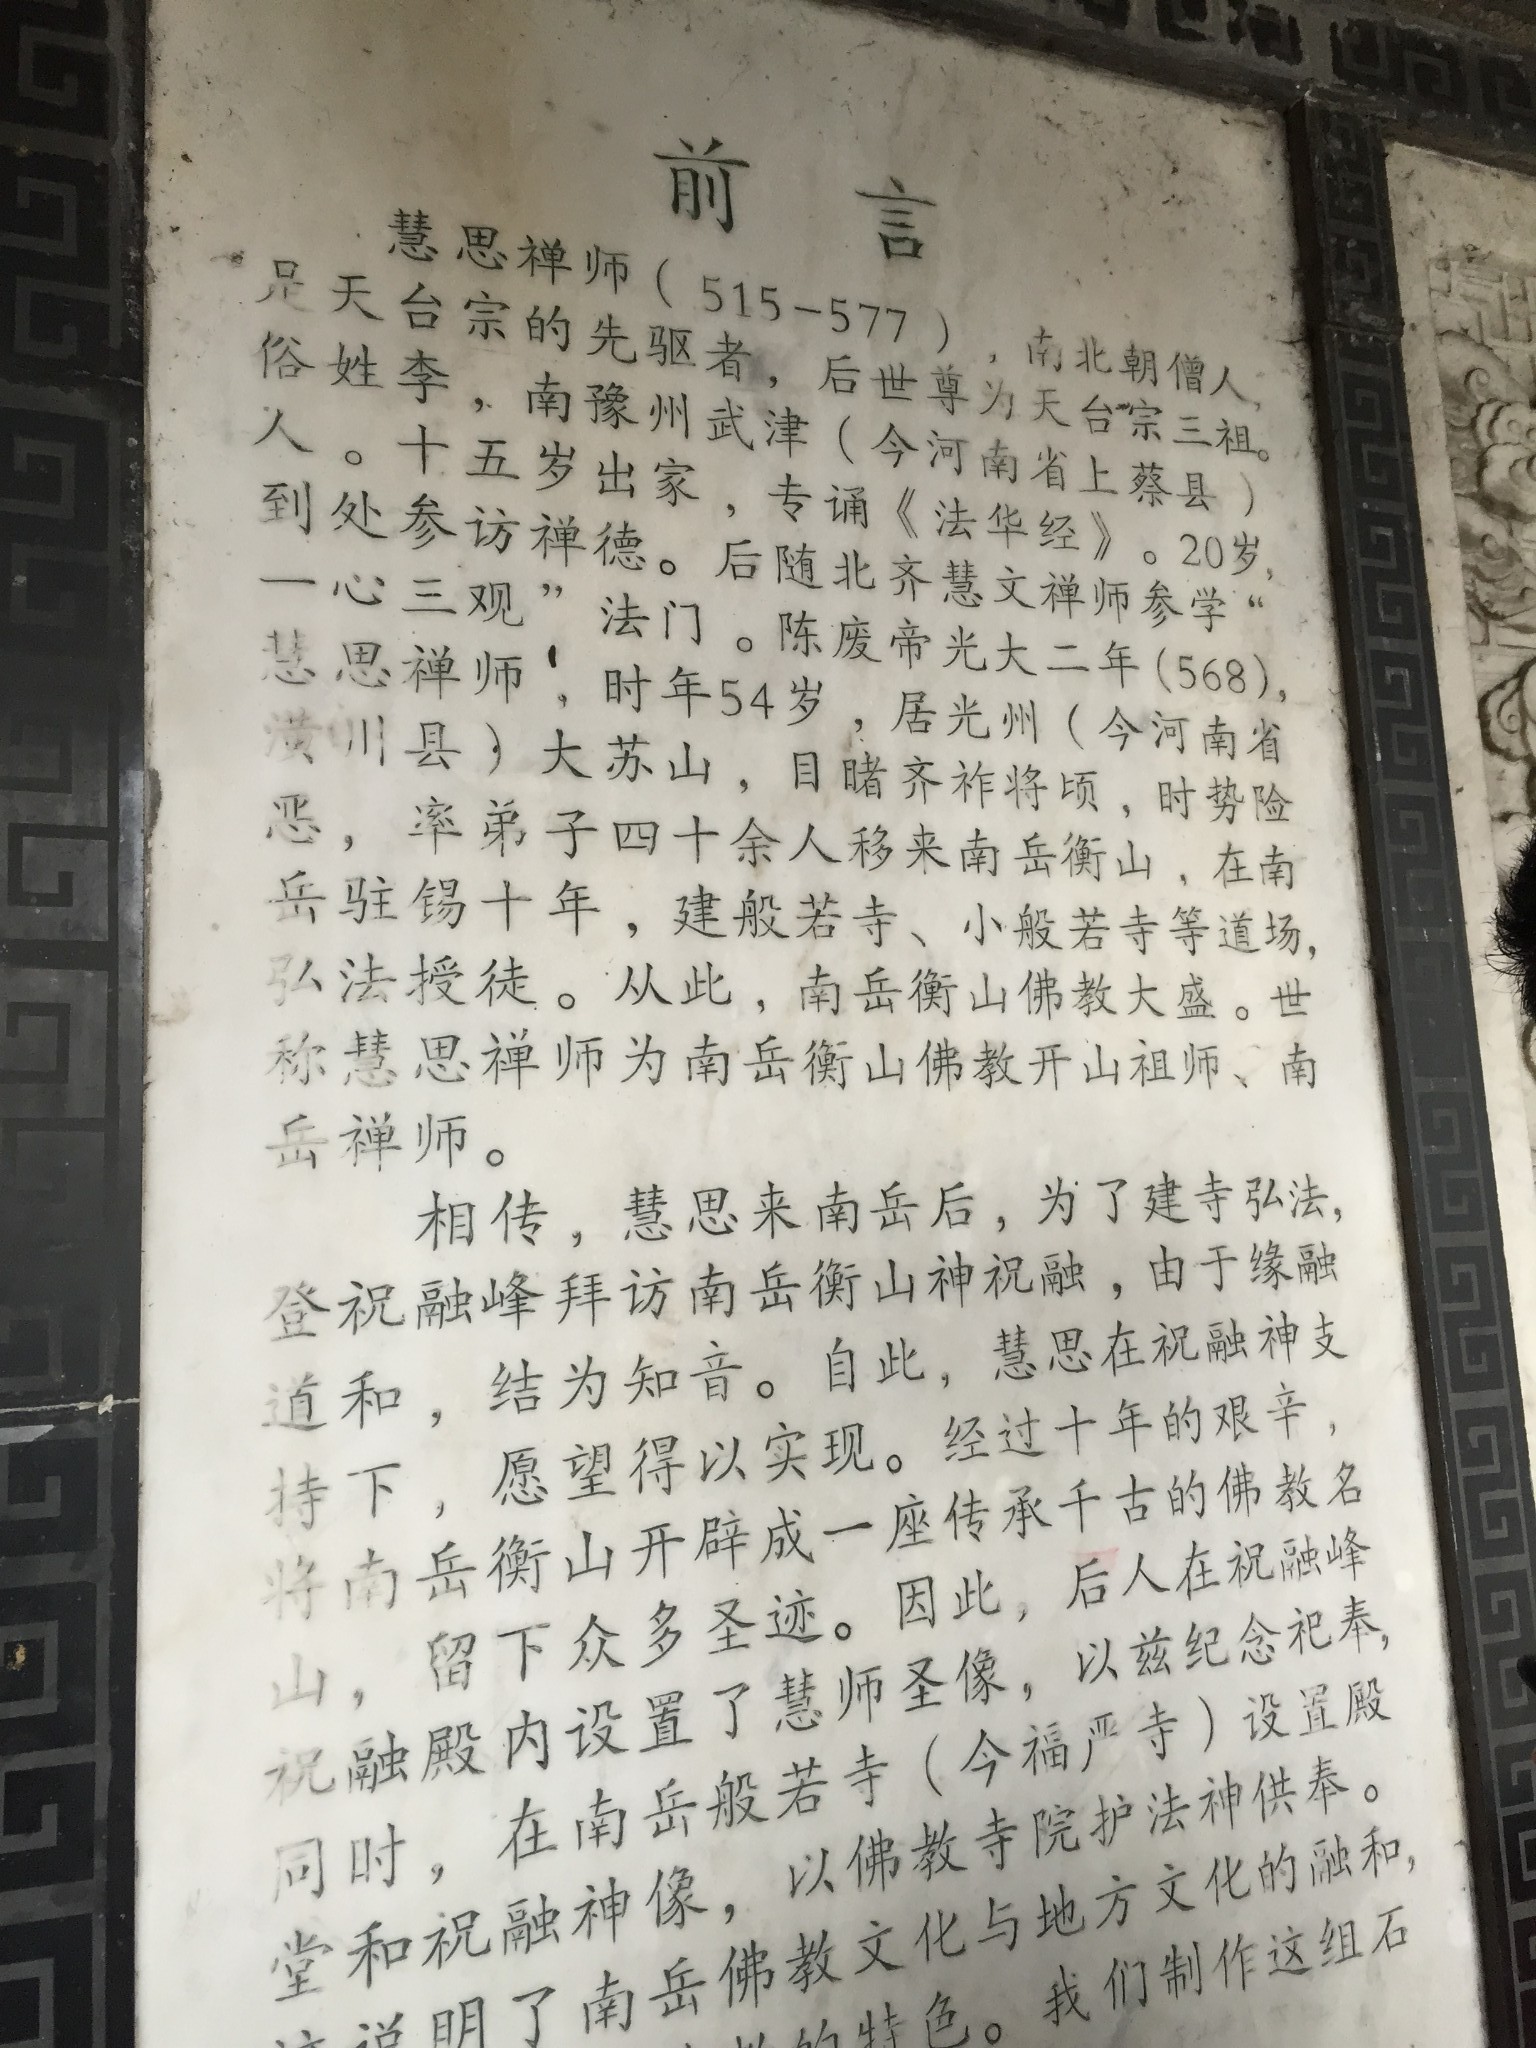 前言
慧思禅师（515-577），南北朝僧人，
是天台宗的先驱者，后世尊为天台宗三祖。
俗姓李，南豫州武津（今河南省上蔡县）
人。十五岁出家，专诵《法华经》。20岁，
到处参访禅德。后随北齐慧文禅师参学“
一心三观”法门。陈废帝光大二年(568)，
慧思禅师，时年54岁，居光州（今河南省
潢川县）大苏山，目睹齐祚将顷，时势险
恶，率弟子四十余人移来南岳衡山，在南
岳驻锡十年，建般若寺、小般若寺等道场，
弘法授徒。从此，南岳衡山佛教大盛。世
称慧思禅师为南岳衡山佛教开山祖师、南
岳禅师。
相传，慧思来南岳后，为了建寺弘法，
登祝融峰拜访南岳衡山神祝融，由于缘融
道和，结为知音。自此，慧思在祝融神支
持下，愿望得以实现。经过十年的艰辛，
将南岳衡山开辟成一座传承千古的佛教名
山，留下众多圣迹。因此，后人在祝融峰
祝融殿内设置了慧师圣像，以兹纪念祀奉，
同时，在南岳般若寺（今福严寺）设置殿
堂和祝融神像，以佛教寺院护法神供奉。
说明了南岳佛教文化与地方文化的融和，
的特色。我们制作这组石